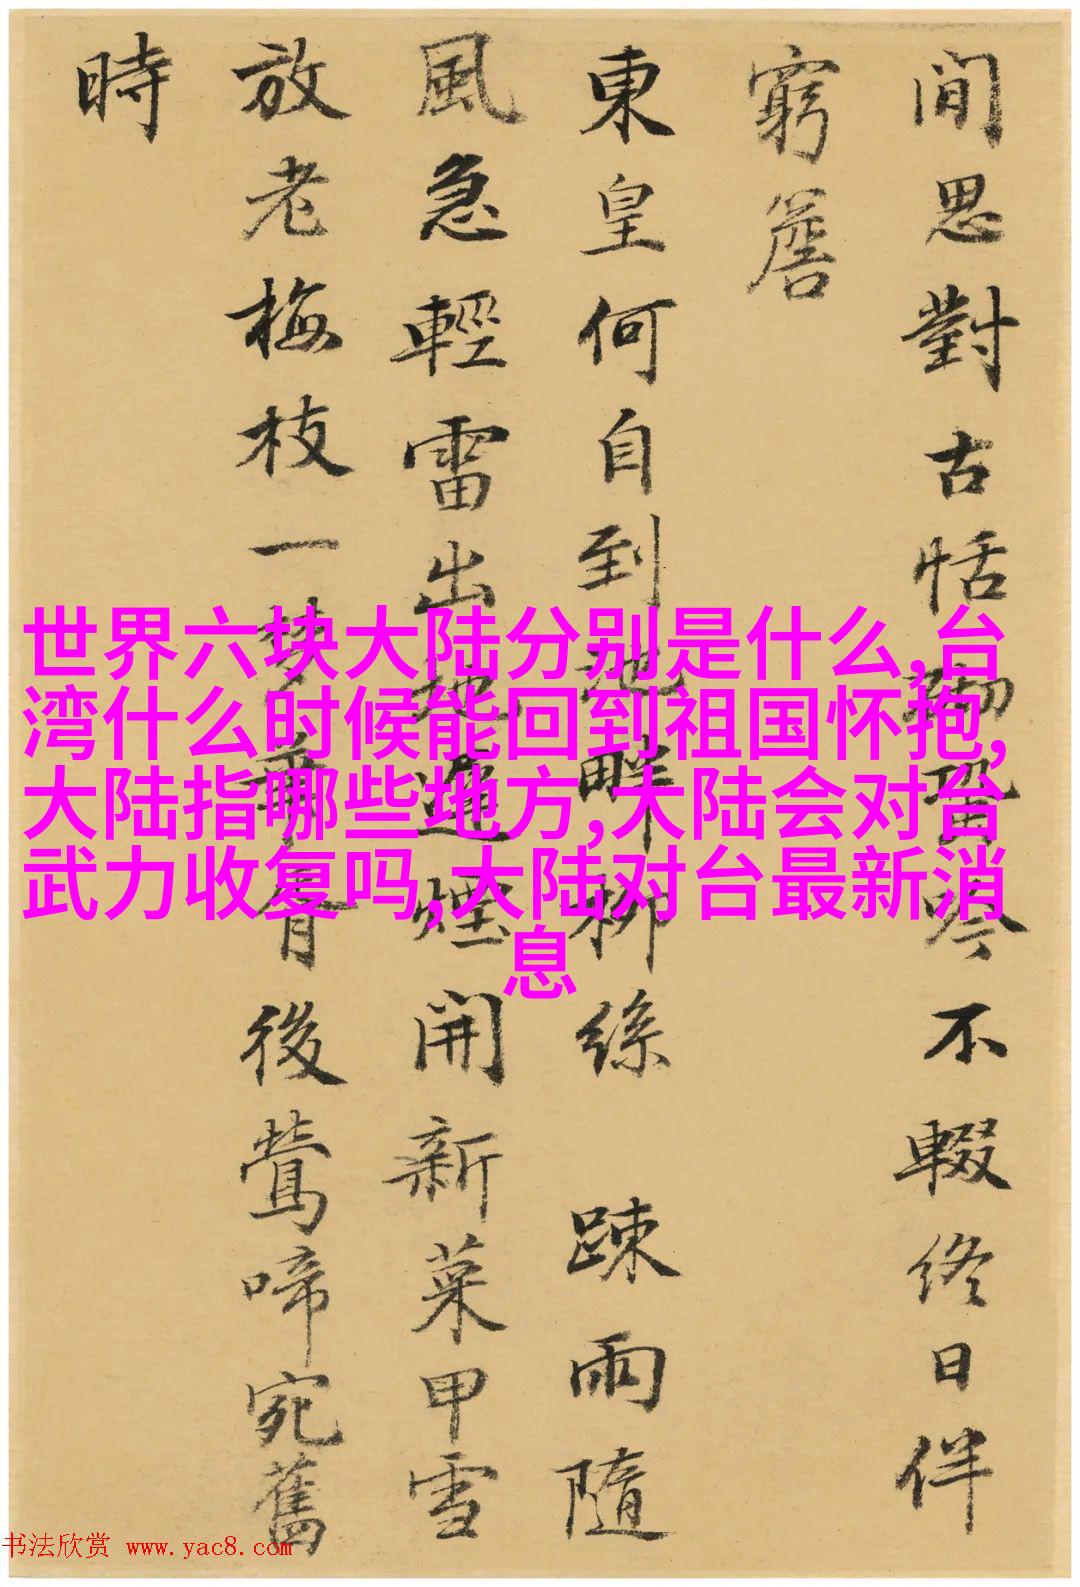 閒思對古恬 不輟終日伴
窮簷
東皇何自到 池畔柳絲 踈雨隨
風急輕雷出地 進煙開新菜甲雪
放老梅枝一夢 後鶯啼宛舊
時
世界六块大陆分别是什么,台
湾什么时候能回到祖国怀抱,
大陆指哪些地方,大陆会对台
武力收复吗,大陆对台最新消
息
书法欣赏 www.yac8.com